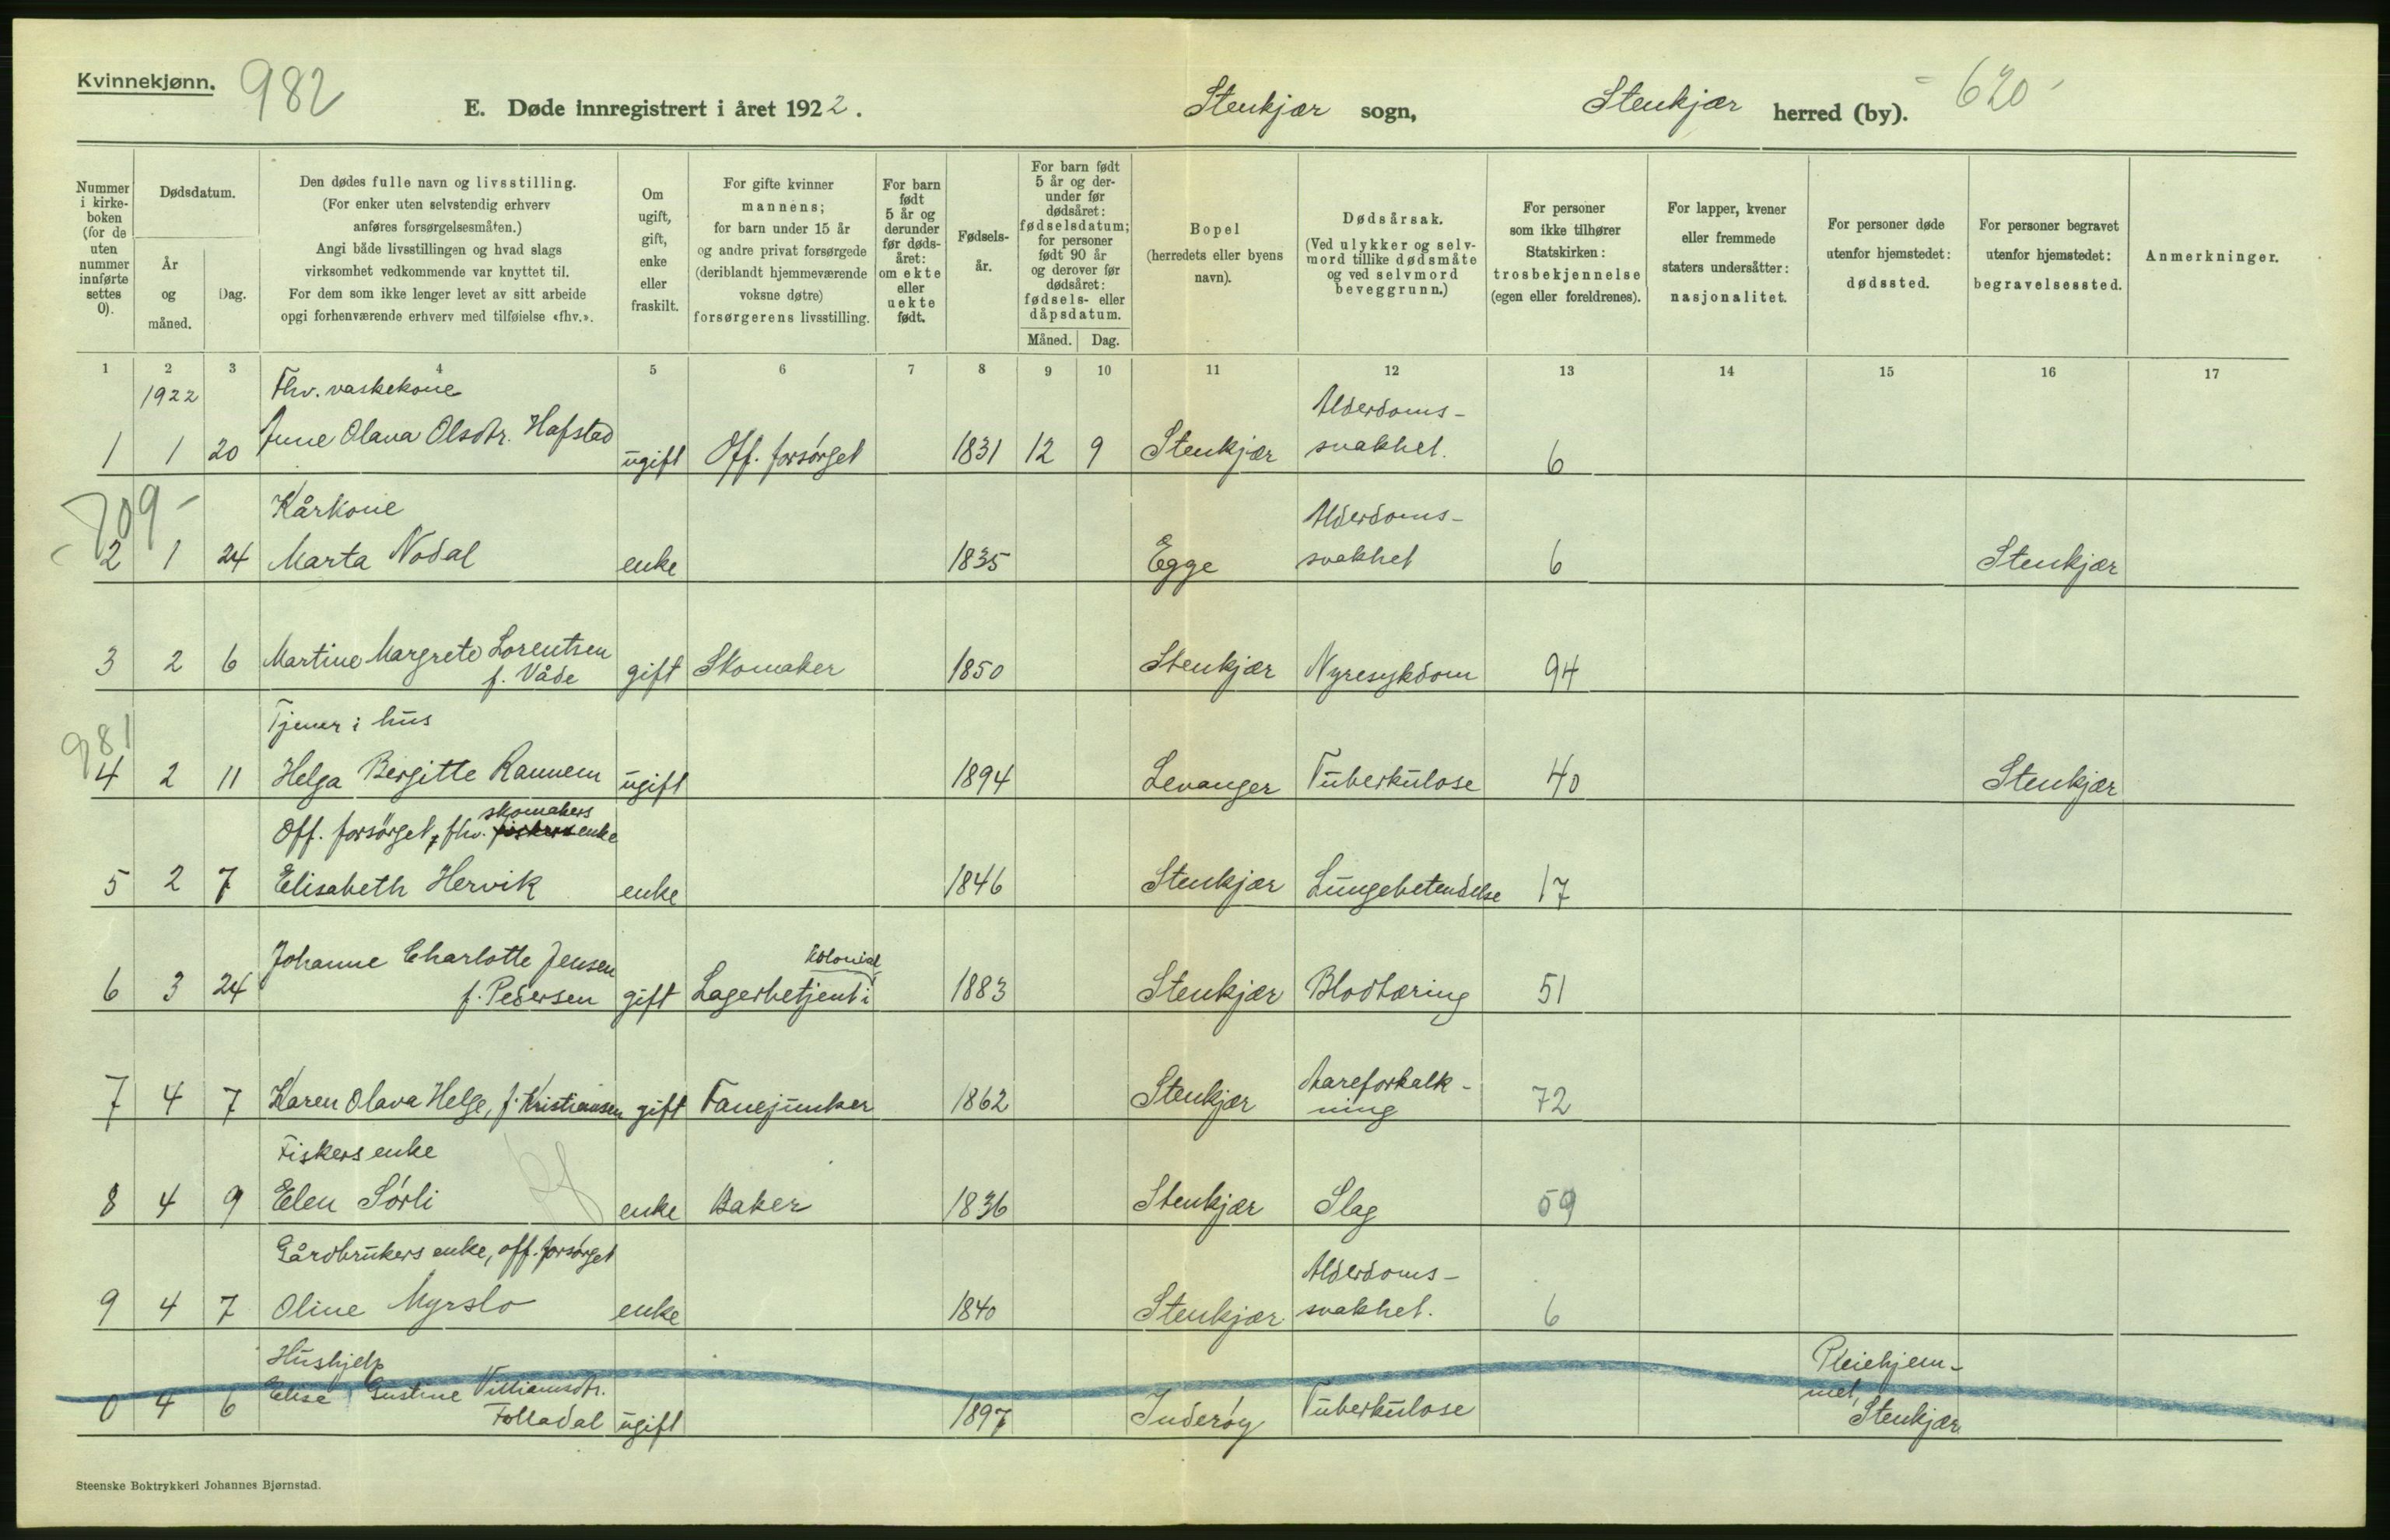 Kvinnekjønn. 982
E. Døde innregistrert i året 1922. Stenkjær sogn, Stenkjær herred (by). 620
Nummer i kirke-boken (for de uten nummer innførte settes 0).
Dødsdatum.
År og måned.
Dag.
Den dødes fulle navn og livsstilling.
(For enker uten selvstendig erhverv
anføres forsørgelsesmåten.)
Angi både livsstillingen og hvad slags
virksomhet vedkommende var knyttet til.
For dem som ikke lenger levet av sitt arbeide
opgi forhenværende erhverv med tilføielse «fhv.».
Om ugift, gift, enke eller fraskilt.
For gifte kvinner
mannens;
for barn under 15 år
og andre privat forsørgede
(deriblandt hjemmeværende
voksne døtre)
forsørgerens livsstilling.
For barn født 5 år og derunder før døds-året: om ekte eller uekte født.
Fødsels-år.
For barn født 5 år og der-under før dødsåret: fødselsdatum; for personer født 90 år og derover før dødsåret: fødsels- eller dåpsdatum.
Måned. Dag.
Bopel
(herredets eller byens
navn).
Dødsårsak.
(Ved ulykker og selv-
mord tillike dødsmåte
og ved selvmord
beveggrunn.)
For personer
som ikke tilhører
Statskirken:
trosbekjennelse
(egen eller foreldrenes).
For lapper, kvener
eller fremmede
staters undersåtter:
nasjonalitet.
For personer døde
utenfor hjemstedet:
dødssted.
For personer begravet
utenfor hjemstedet:
begravelsessted.
Anmerkninger.
1 2 3 4 5 6 7 8 9 10 11 12 13 14 15 16 17
1922 Fhv. vaskekone Alderdoms-
1 1 20 Anne Olava Olsdtr. Hafstad ugift Off. forsørget 1831 12 9 Stenkjær svakhet. 6
709
Kårkone Alderdoms-
2 1 24 Marta Nodal enke 1835 Egge svakhet 6 Stenkjær
3 2 6 Martine Margrete Lorentsen
f. Våde gift Skomaker 1850 Stenkjær Nyresykdom 94
981 Tjener i hus
4 2 11 Helga Bergitte Rannem ugift 1894 Levanger Tuberkulose 40 Stenkjær
skomakers
Off. forsørget, fhv. fiskers enke
5 2 7 Elisabeth Hervik enke 1846 Stenkjær Lungebetendelse 17
Johanne Charlotte Jensen kolonial
6 3 24 f. Pedersen gift Lagerbetjent i 1883 Stenkjær Blodtæring 51
Aareforkalk-
7 4 7 Karen Olava Helge, f. Kristiansen gift Fanejunker 1862 Stenkjær ning 72
Fiskers enke
8 4 9 Elen Sørli enke Baker 1836 Stenkjær Slag 59
Gårdbrukers enke, off. forsørget Alderdoms-
9 4 7 Oline Myrslo enke 1840 Stenkjær svakhet. 6
Hushjelp Pleiehjem-
0 4 6 Elise Gustine Villiamsdtr. met,
Folladal ugift 1897 Inderøy Tuberkulose Stenkjær
Steenske Boktrykkeri Johannes Bjørnstad.